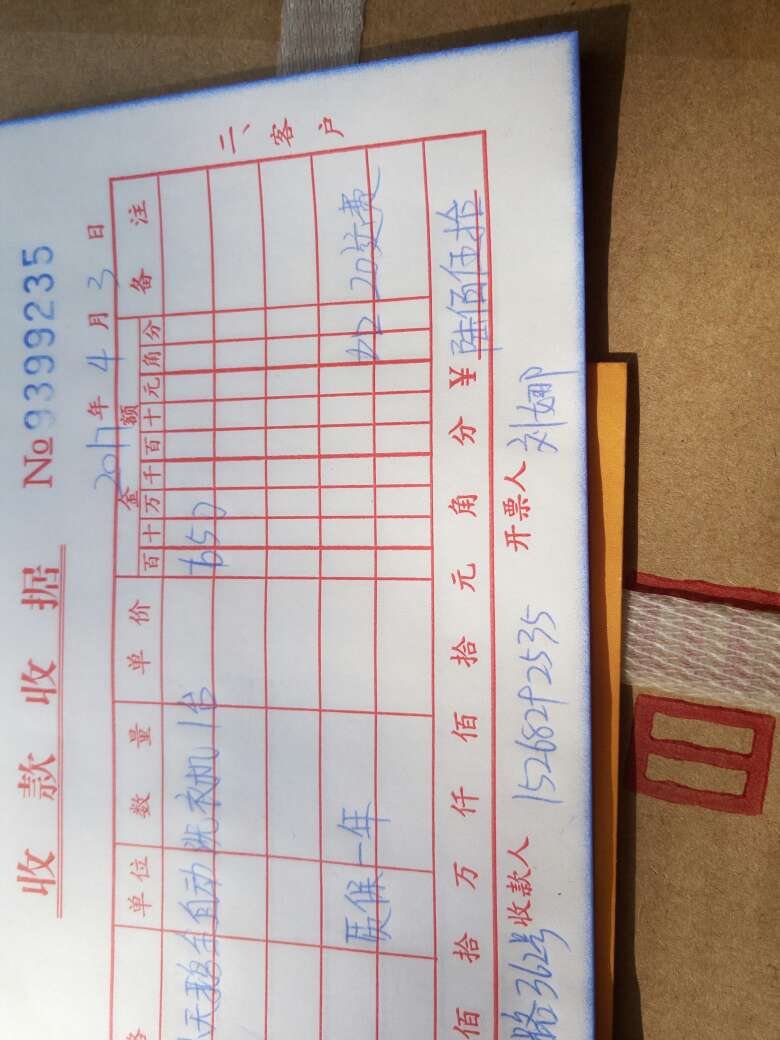 收款收据 No 9399235
2017年4月3日
二、客户
格 单位 数量 单价 金额 备注
百十万千百十元角分
小天鹅全自动洗衣机1台 650
质保一年 加20运费
佰拾万仟佰拾元角分¥陆佰伍拾
路362号 收款人 15268292535 开票人 刘娜